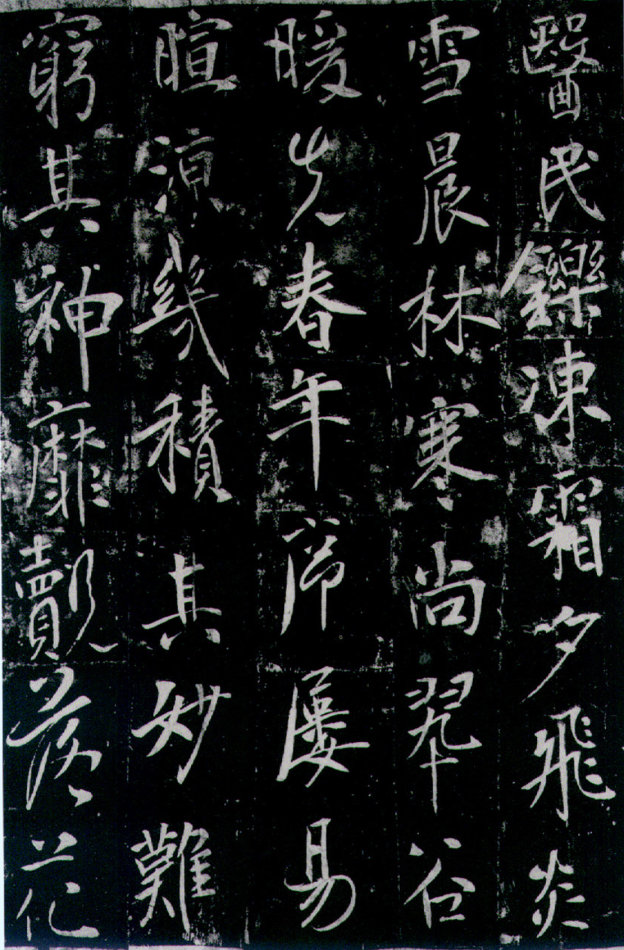 醫民鑠凍霜夕飛炎
雪晨林寒尚翠谷
暖先春年序屢易
暄涼幾積其妙難
窮其神靡覿落花